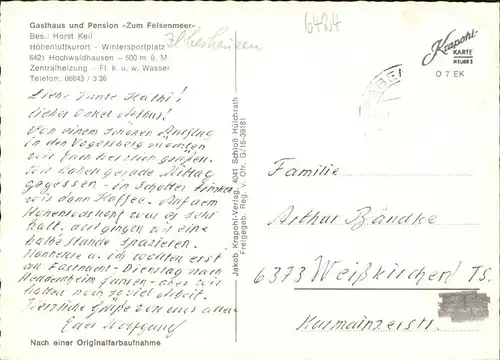 Gasthaus und Pension »Zum Felsenmeer«
Bes.: Horst Keil
Höhenluftkurort - Wintersportplatz
6421 Hochwaldhausen - 500 m ü. M
Zentralheizung - Fl. k. u. w. Wasser
Telefon: 06643 / 3 36
Ilbeshausen
6424
Krapohl-
KARTE
O 7 EK
Liebe Tante Käthi!
Lieber Onkel Arthur!
Von einem schönen Ausflug
in den Vogelsberg möchten
wir Euch herzlich grüßen.
Wir haben gerade Mittag
gegessen - in Schotten trinken
wir dann Kaffee. Auf dem
Hoherodskopf war es sehr
kalt. Wir gingen eine
halbe Stunde spazieren.
Hannelore u. ich wollten erst
an Fastnacht-Dienstag nach
Heddernheim fahren - aber wir
hatten noch soviel Arbeit.
Herzliche Grüße von uns allen
Euer Wolfgang
Nach einer Originalfarbaufnahme
Jakob Krapohl-Verlag, 4041 Schloß Hülchrath
Freigegeb. Reg. v. Ofr. G/16-39181
Familie
Arthur Bändke
6373 Weißkirchen/Ts.
Kurmainzerstr.